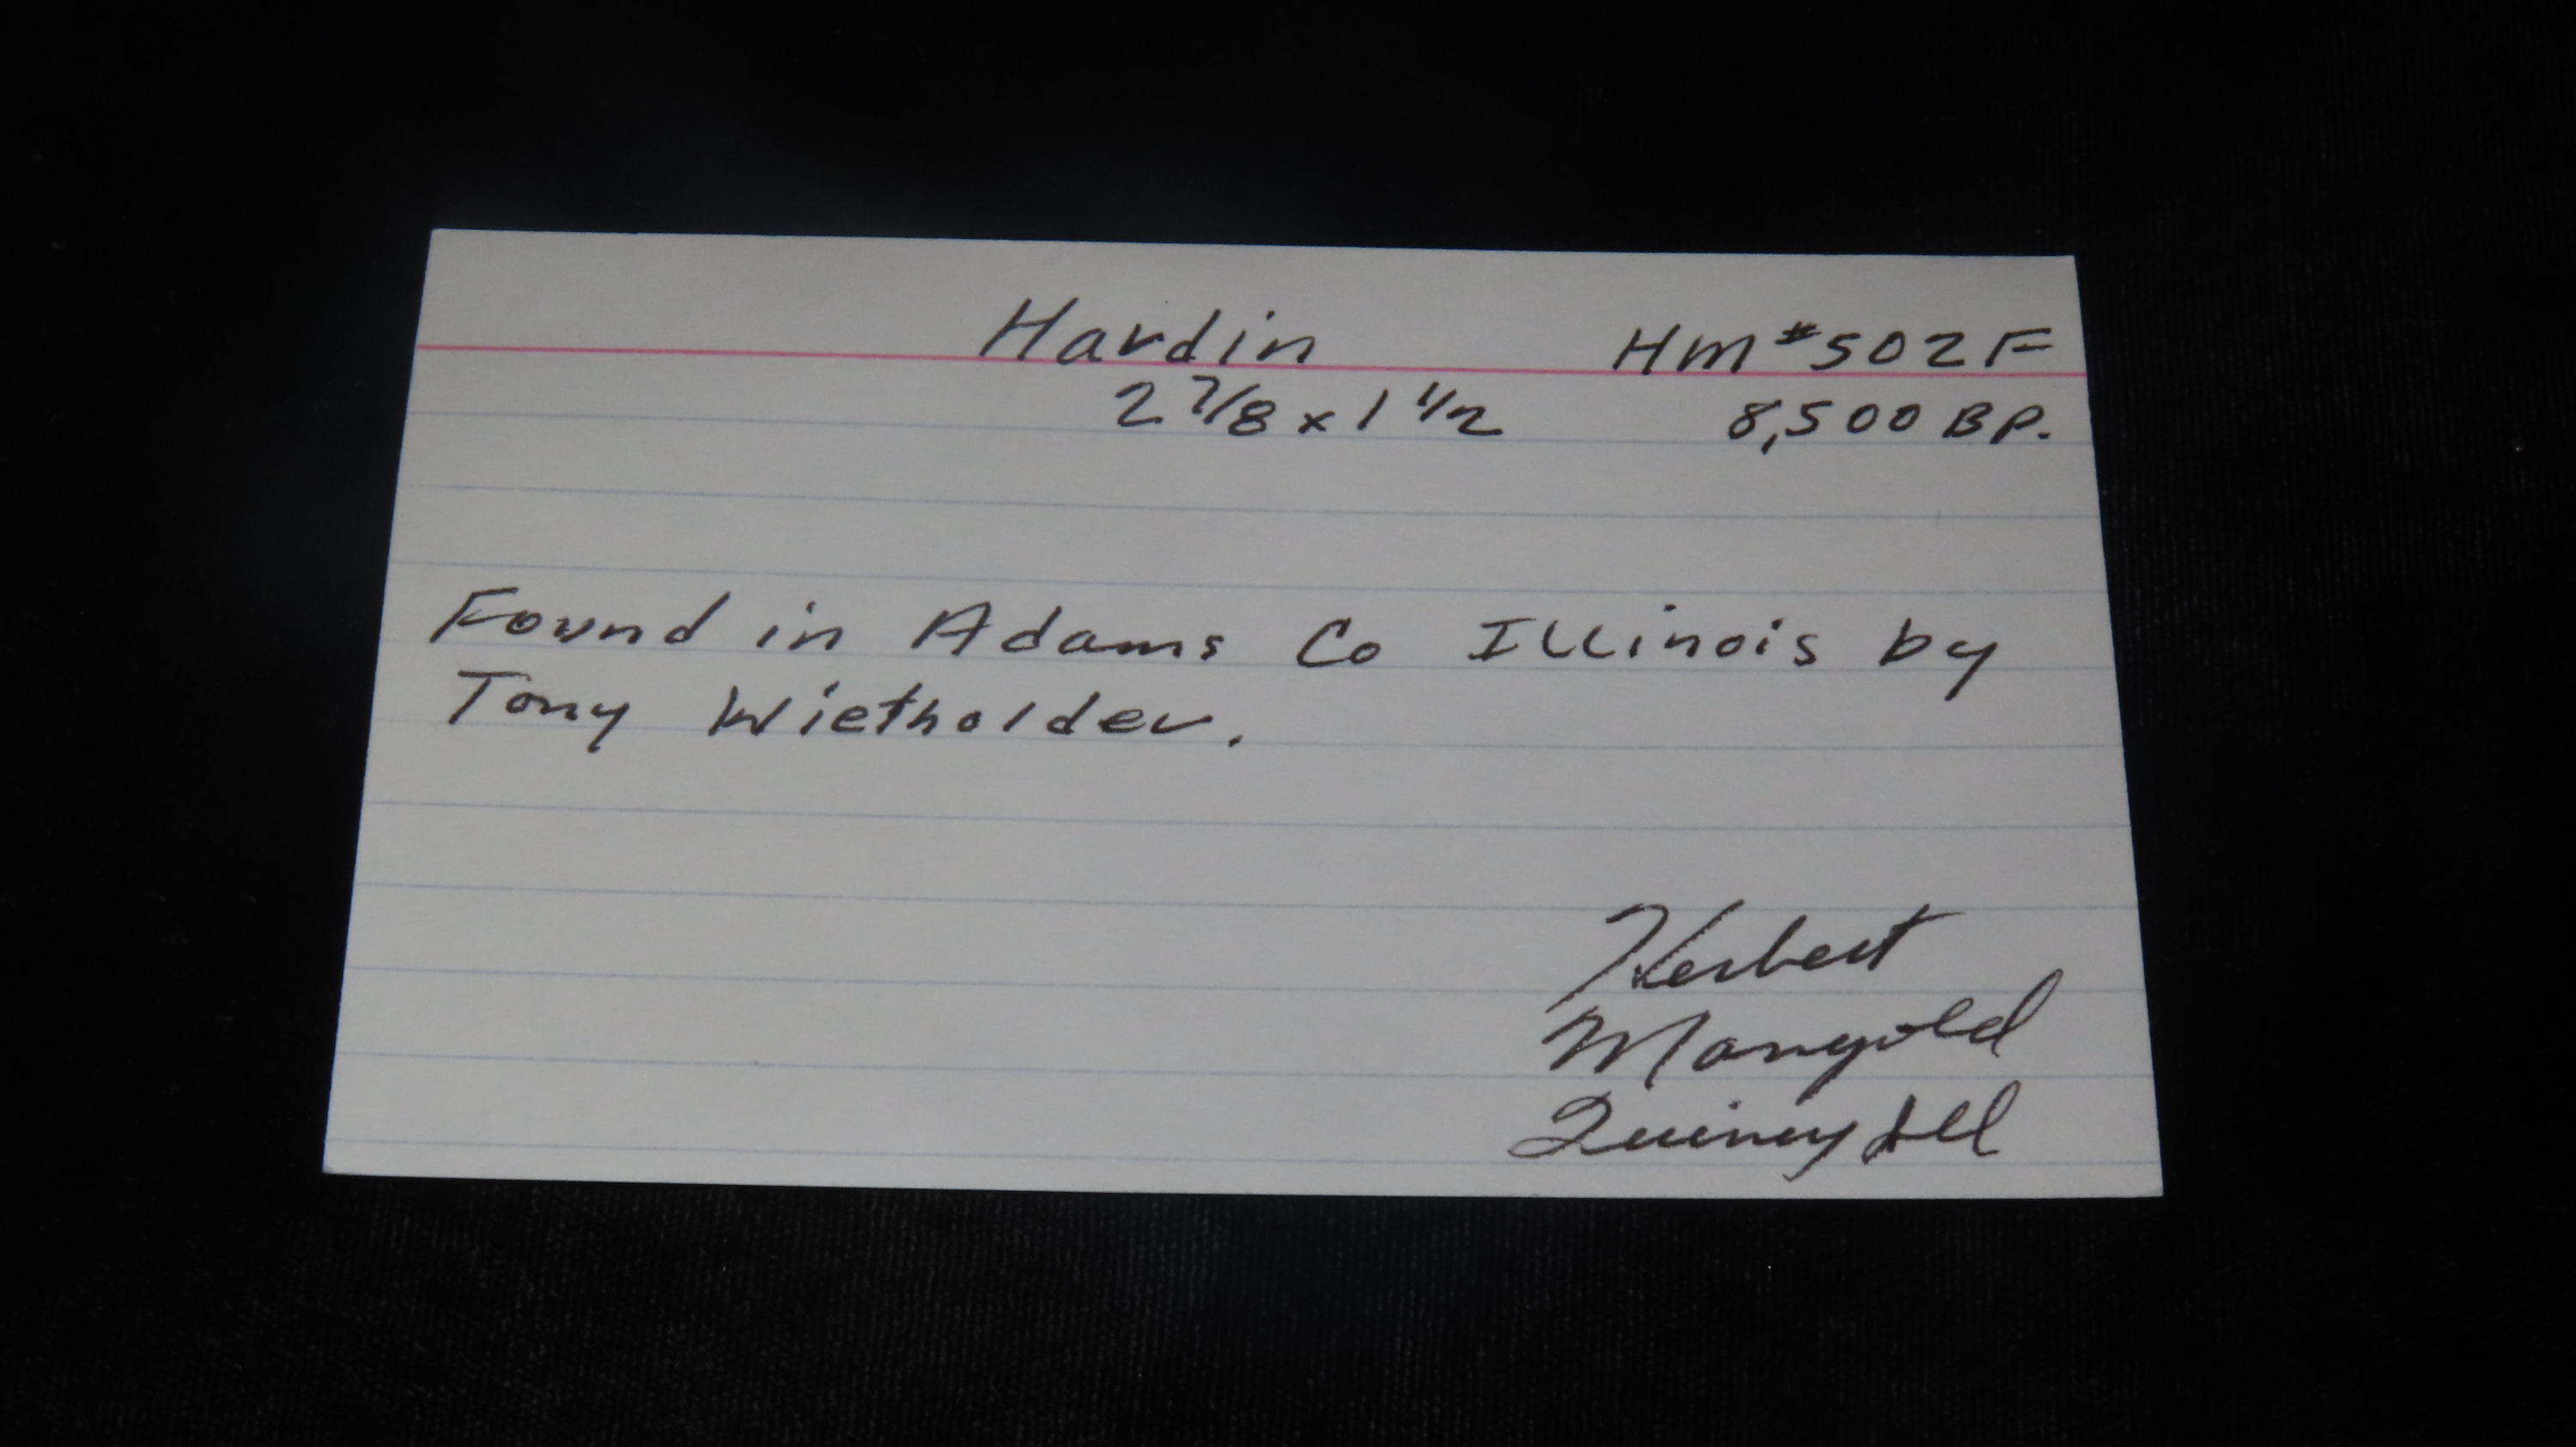 Hardin Hm #502F
2 7/8 x 1 1/2 8,500 BP.
Found in Adams Co Illinois by
Tony Wietholder.
Herbert
Mangold
Quincy Ill